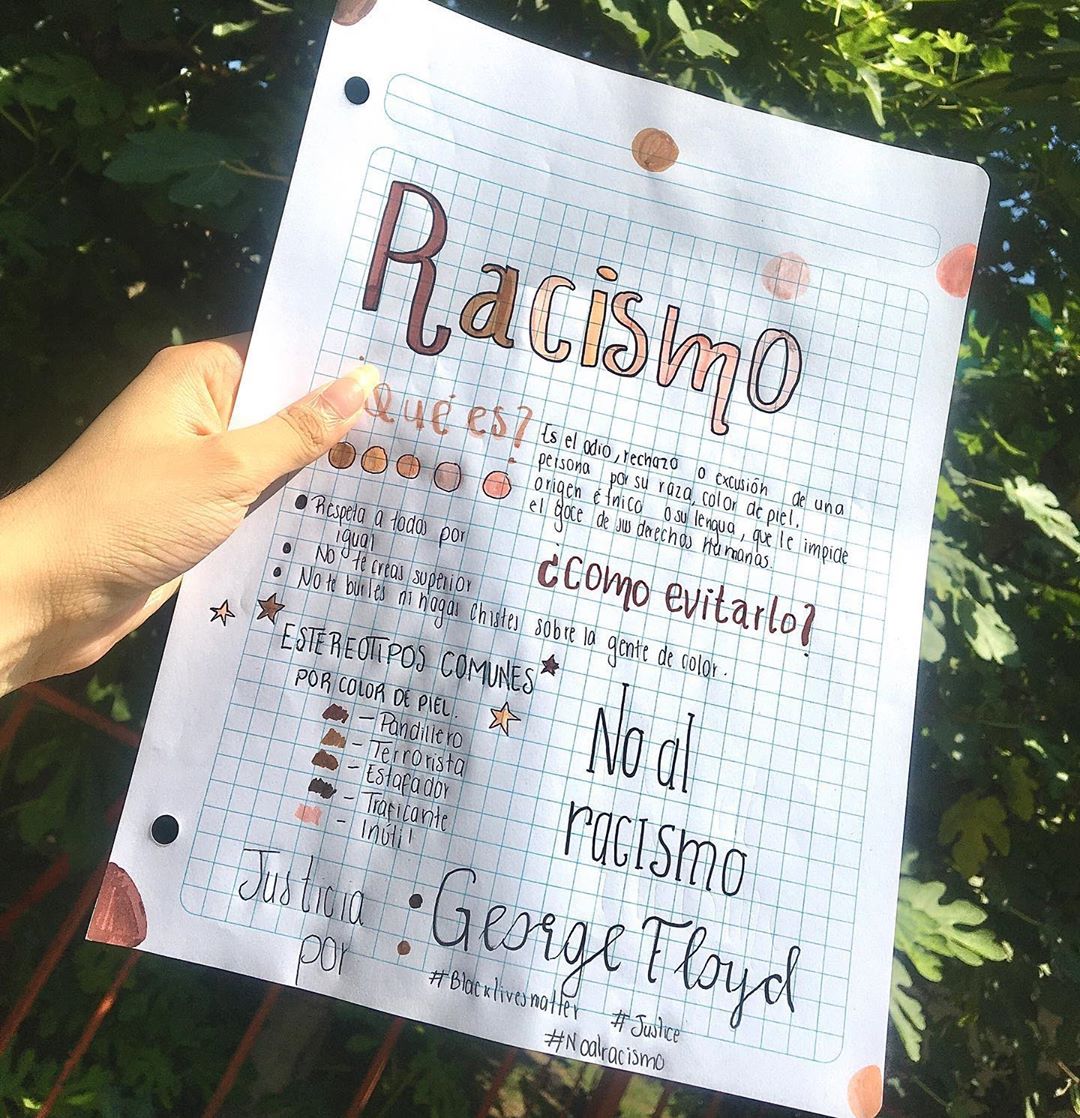 Racismo
¿Qué es?
Es el odio, rechazo o excusión de una
persona por su raza, color de piel,
origen étnico o su lengua, que le impide
el goce de sus derechos Humanos.
¿como evitarlo?
Respeta a todos por
igual
No te creas superior
No te burles ni hagas chistes sobre la gente de color.
ESTEREOTIPOS COMUNES
POR COLOR DE PIEL.
- Pandillero
- Terrorista
- Estafador
- Traficante
- Inútil
No al
racismo
Justicia
por
George Floyd
#Blacklivesmatter
#Justice
#Noalracismo